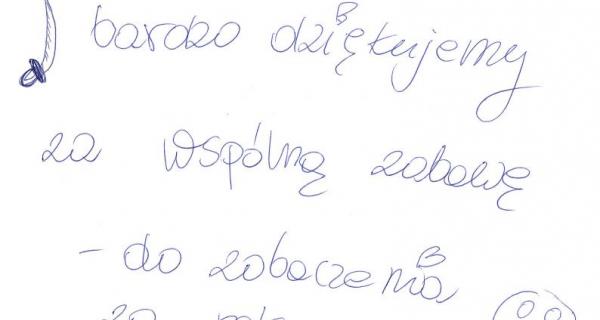 bardzo dziękujemy
za wspólną zabawę
- do zobaczenia
za rok